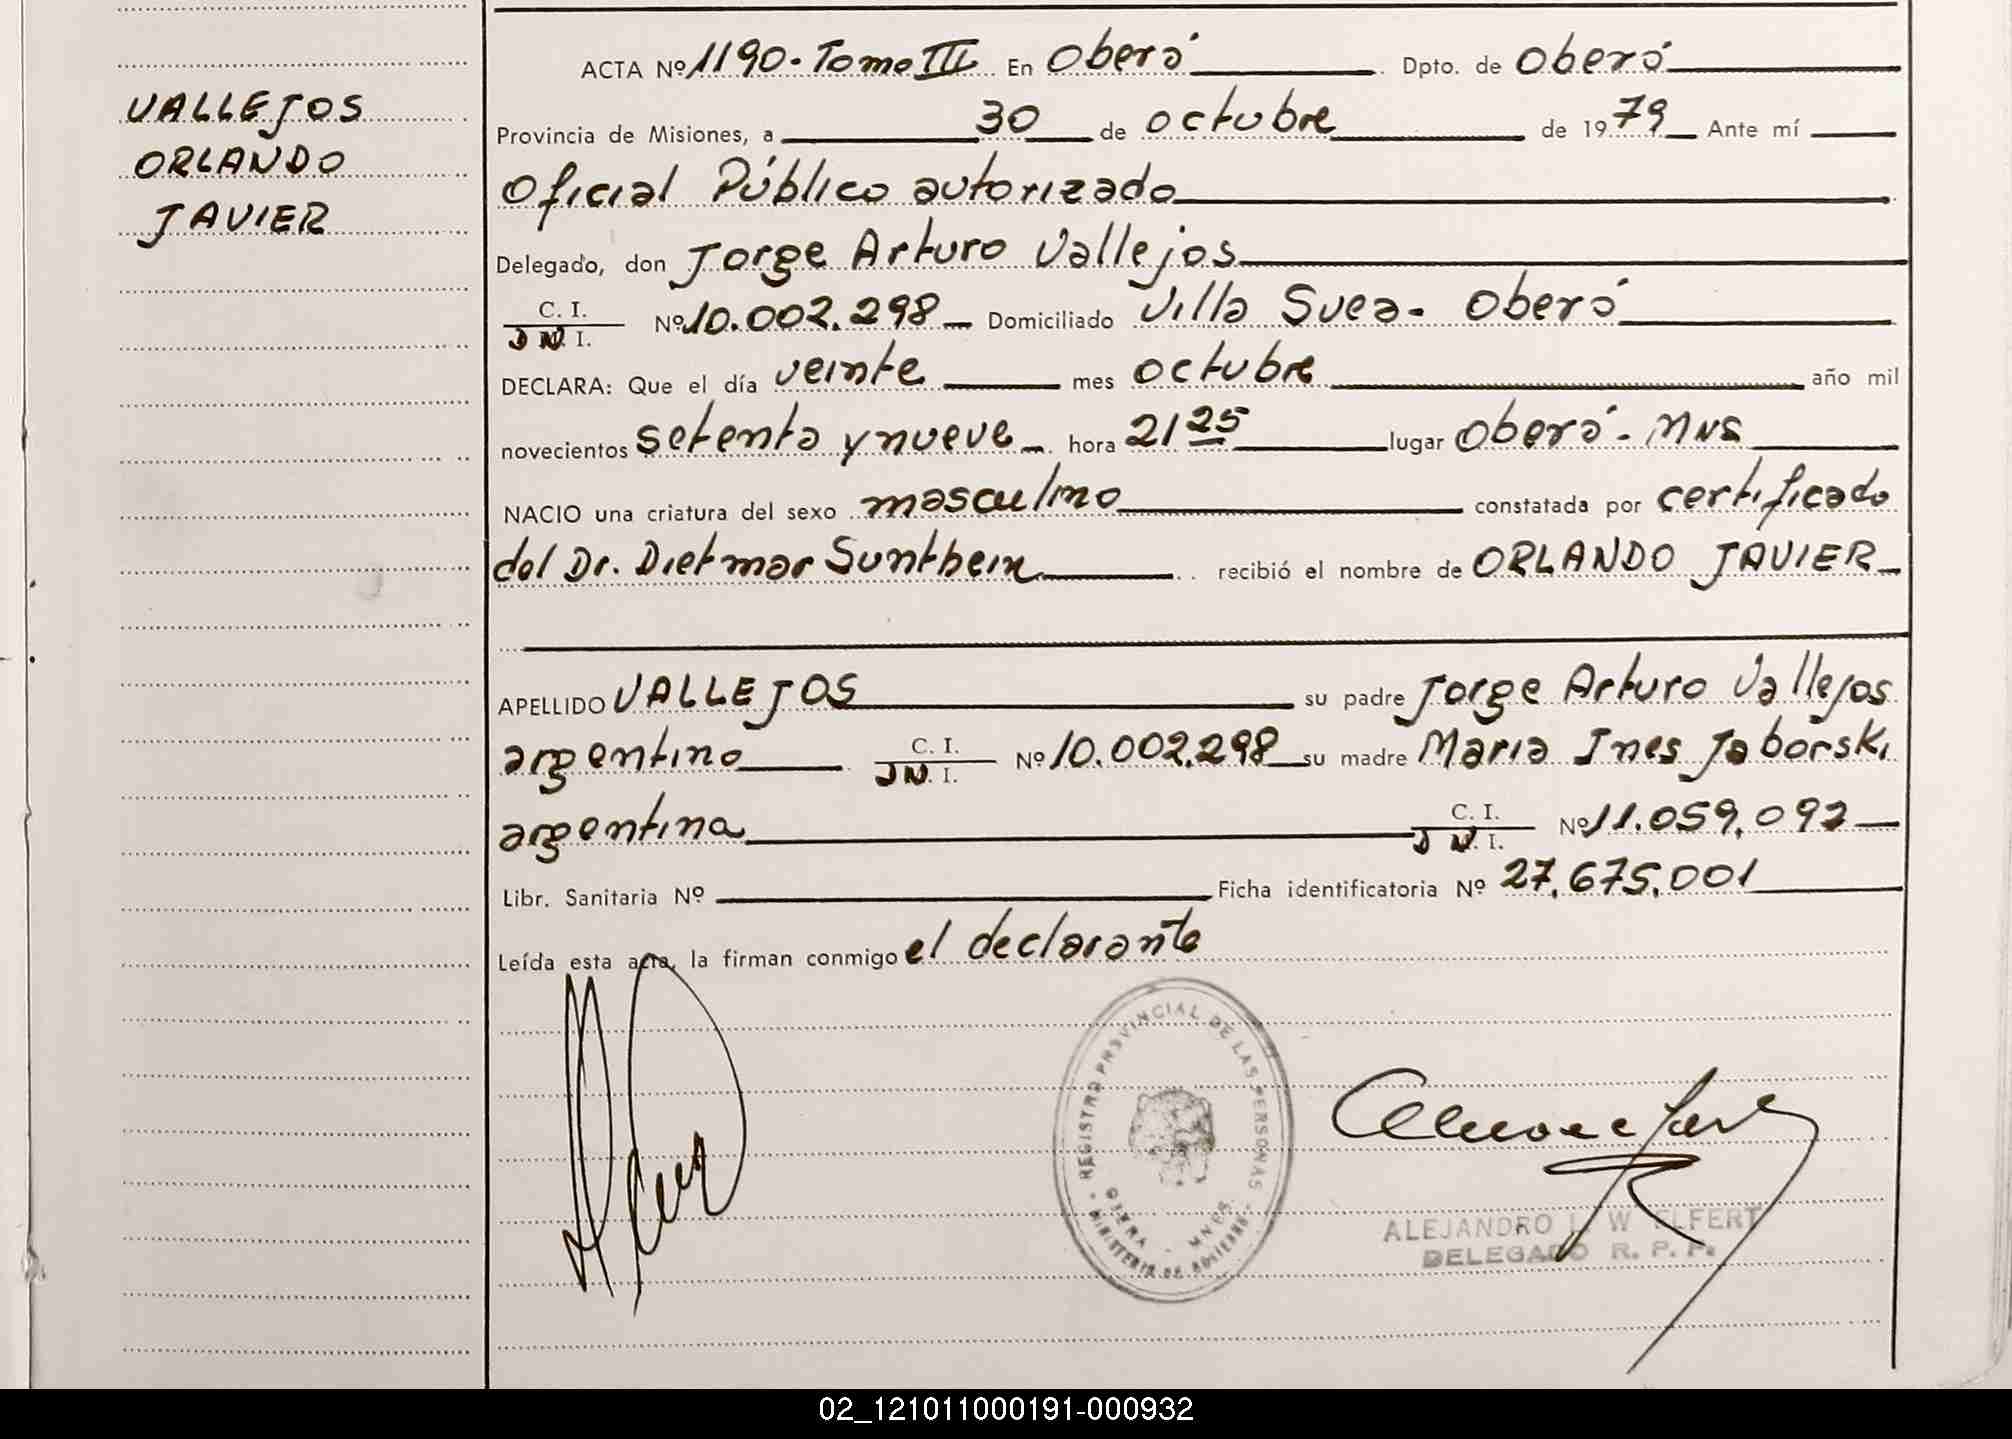 VALLEJOS
ORLANDO
JAVIER
ACTA Nº 1190 - Tomo III En Oberá Dpto. de Oberá
Provincia de Misiones, a 30 de octubre de 1979 Ante mí
Oficial Público autorizado
Delegado, don Jorge Arturo Vallejos
C. I.
D N. I. Nº 10.002.298 Domiciliado Villa Svea - Oberá
DECLARA: Que el día veinte mes octubre año mil
novecientos setenta y nueve hora 21 25 lugar Oberá - Mns
NACIO una criatura del sexo masculino constatada por certificado
del Dr. Dietmar Sunthein recibió el nombre de ORLANDO JAVIER
APELLIDO VALLEJOS su padre Jorge Arturo Vallejos
argentino C. I. D N. I. Nº 10.002.298 su madre Maria Ines Jaborski
argentina C. I. D N. I. Nº 11.059.092
Libr. Sanitaria Nº Ficha identificatoria Nº 27.675.001
Leída esta acta, la firman conmigo el declarante
REGISTRO PROVINCIAL DE LAS PERSONAS
OBERA - MNES.
MINISTERIO DE GOBIERNO
ALEJANDRO W ELFERT
DELEGADO R. P. P.
02_121011000191-000932